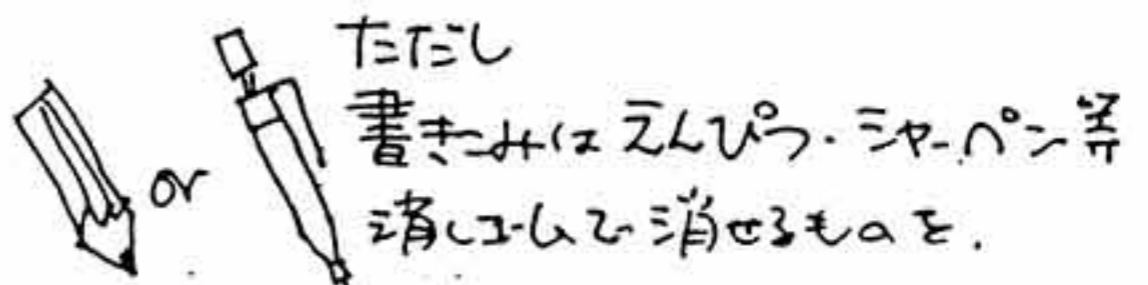 ただし
or
書きこみはえんぴつ・シャーペン等
消しゴムで消せるものを.